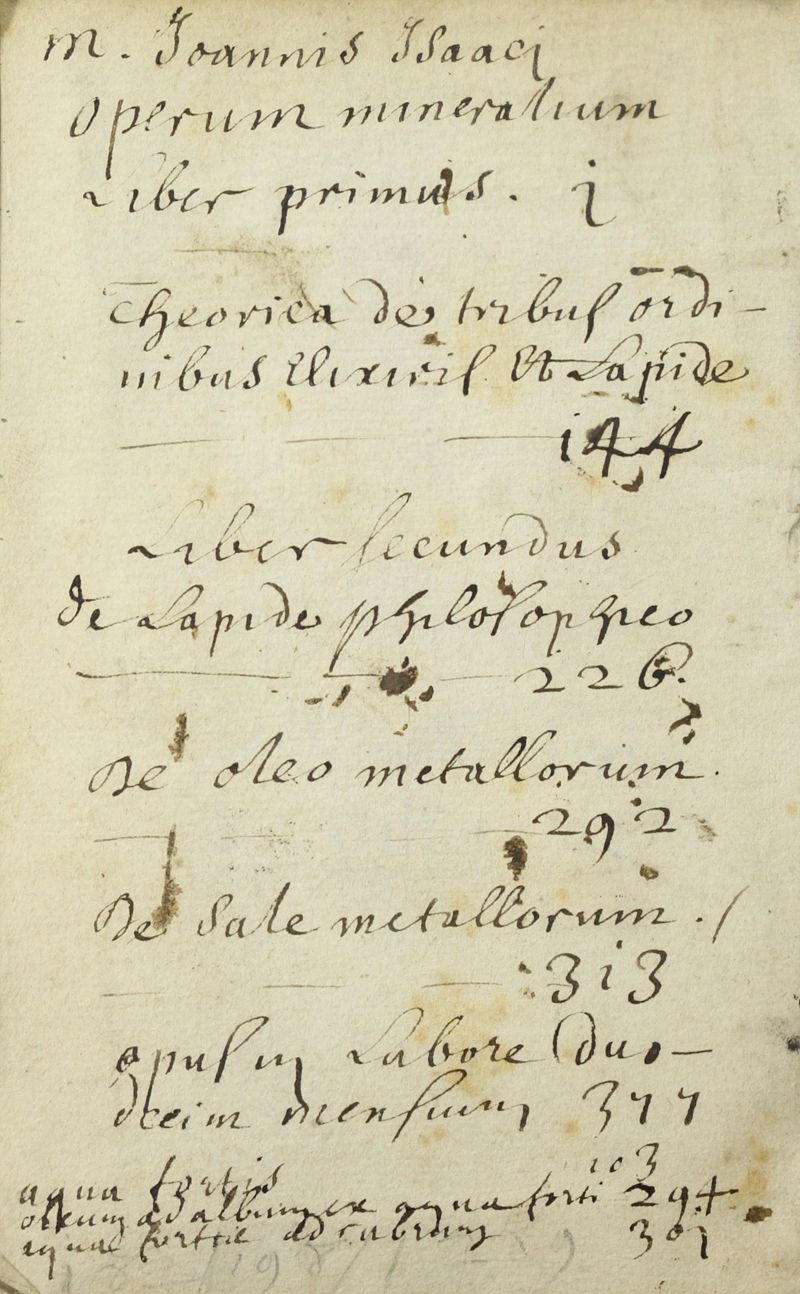 M. Joannis Isaacj
operum mineralium
Liber primus. j
Theorica de tribus ordi-
nibus Elixiris Et Lapide
144
Liber secundus
de Lapide philosophico
226.
De oleo metallorum.
292
De Sale metallorum. /
313
opus in Labore duo-
decim mensium 377
aqua fortis 103
oleum ad album ex aqua forti 294
aquae fortae ad rubrum 301